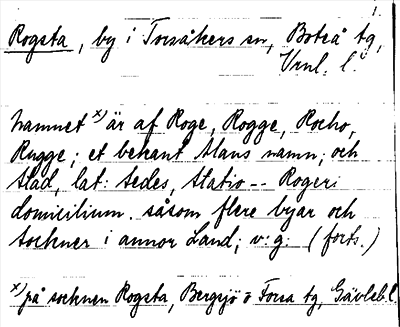 1.
Rogsta, by i Torsåkers sn, Boteå tg,
Vnl. l.
Namnet x) är af Roge, Rogge, Rocho,
Rugge; et bekant Mans namn; och
stad, lat: sedes, statio -- Rogeri
domicilium. såsom flere byar och
sockner i annor Land; v: g: (forts.)
x) på socknen Rogsta, Bergsjö o Forsa tg, Gävleb. l.